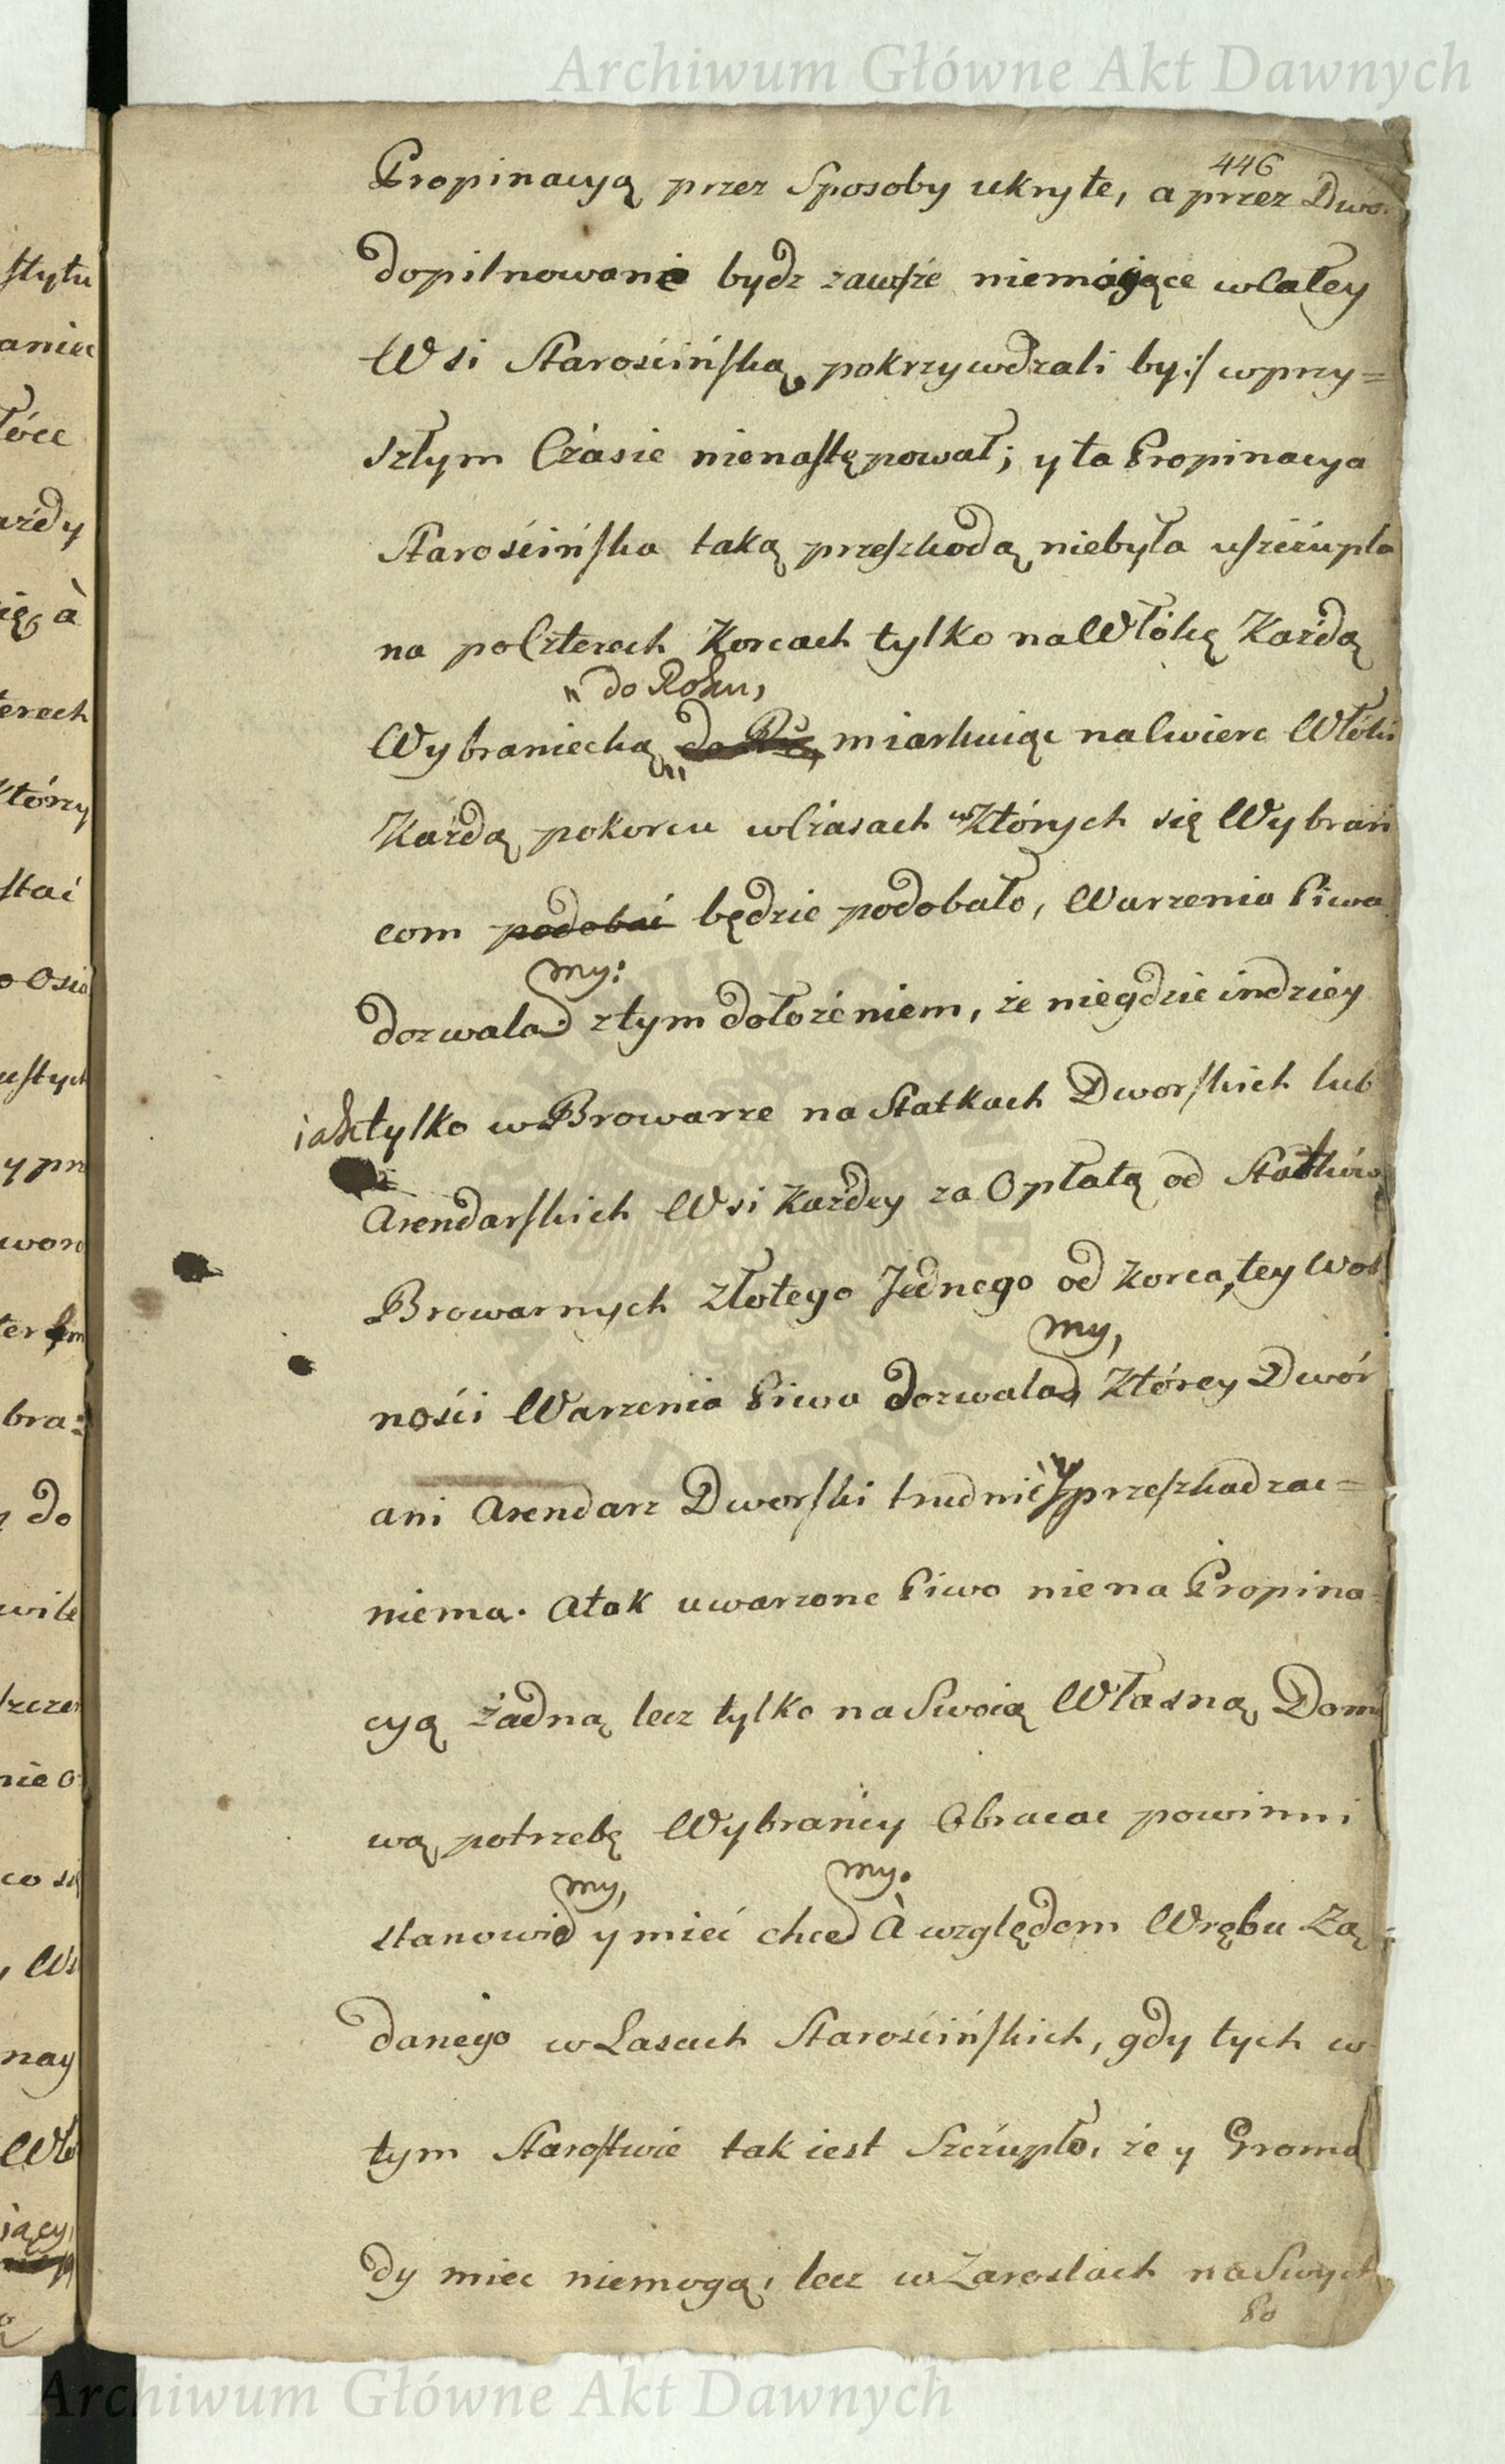 Archiwum Główne Akt Dawnych
446
Propinacyą przez Sposoby ukryte, a przez Dwo
dopilnowane bydz zawsze niemogące w Całey
Wsi Starościńską, pokrzywdzali by:/ w przy=
szłym Czasie nienastępował; y ta Propinacya
Starościńska taką przeszkodą niebyła uszczupla
na po Czterech Korcach tylko na Włókę Każdą
" do Roku,
Wybraniecką miarkuiąc na Cwierc Włóki
Każdą po korcu w Czasach w Których się Wybrań
com podobać będzie podobało, Warzenia Piwa
my:
dozwala z tym dołożeniem, że niegdzie indziey
iak tylko w Browarze na Statkach Dworskich lub
Arendarskich Wsi Każdey za Opłatą od Statków
Browarnych Złotego Jednego od korca, tey Wol
my,
ności Warzenia Piwa dozwala Którey Dwór
ani Arendarz Dworski trudnić y przeszkadzac=
niema. A tak uwarzone Piwo nie na Propina=
cyą żadną lecz tylko na Swoią Własną Domo
wą potrzebę Wybrańcy Obracac powinni
my, my.
stanowie y mieć chce À względem Wrębu Zą=
danego w Lasach Starościńskich, gdy tych w
tym Starostwie tak iest Szczupło, że y Groma
dy miec niemogą, lecz w Zaroslach na Swych
Po
stytu
aniec
łóce
ażdy
ię, à
terech
Którzy
stać
o Osia
ustych
y prz
wor
bra=
do
wile
nie o
co si
, Ws
nay
Wło
iący,
Archiwum Główne Akt Dawnych